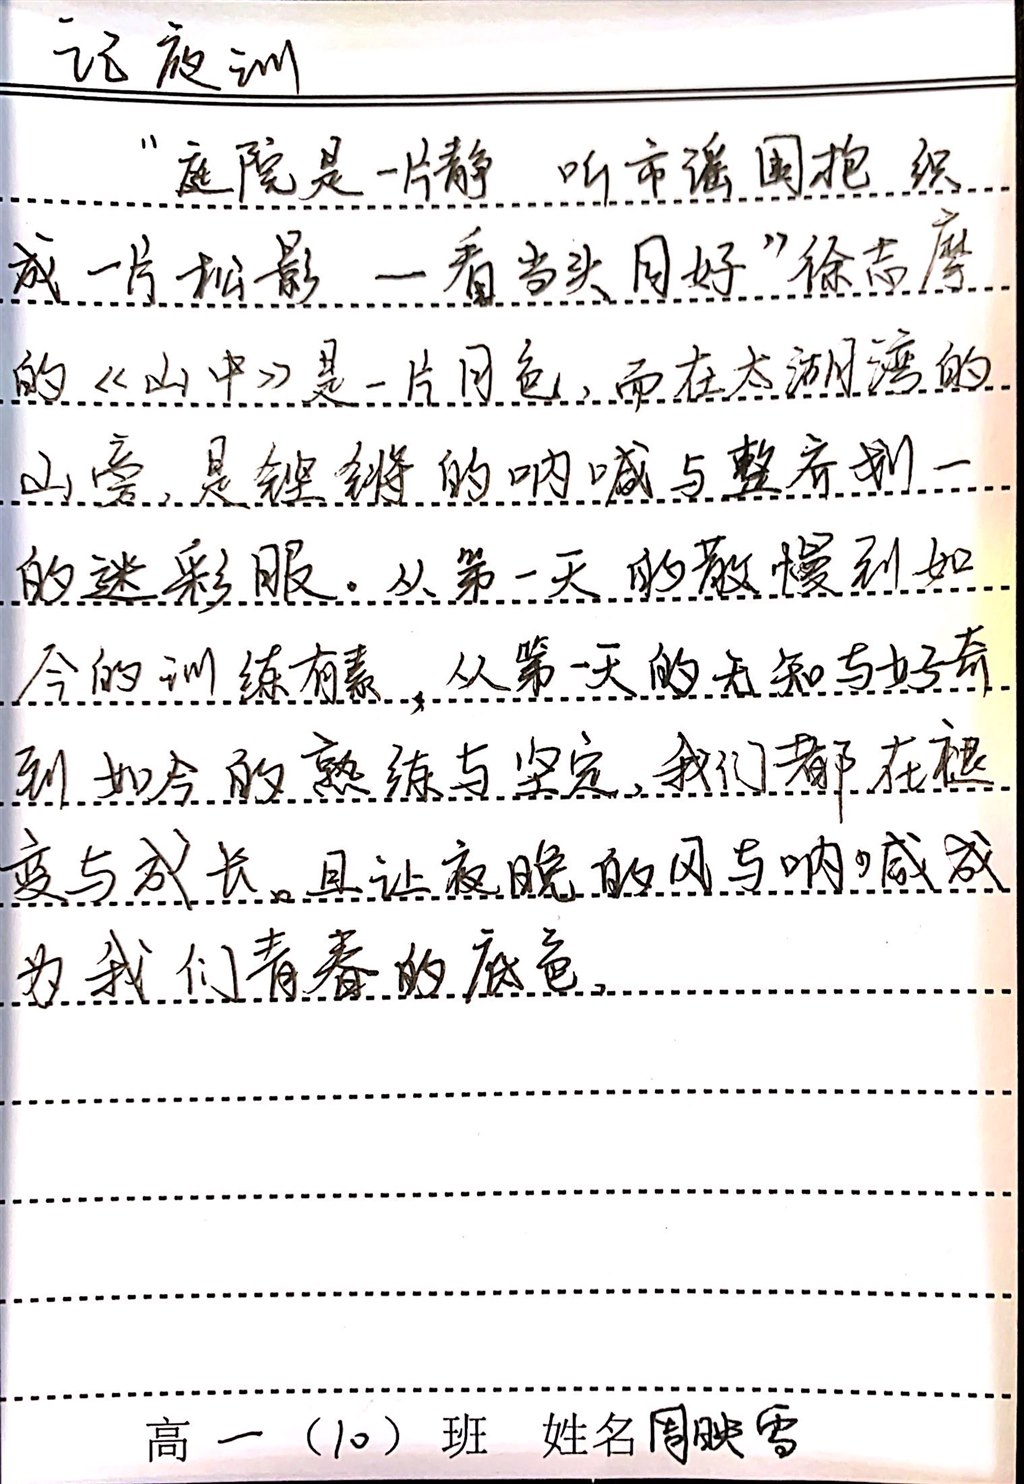 记夜训
“庭院是一片静 听市谣围抱 织
成一片松影 一看当头月好”徐志摩
的《山中》是一片月色,而在太湖湾的
山旁,是铿锵的呐喊与整齐划一
的迷彩服.从第一天的散慢到如
今的训练有素,从第一天的无知与好奇
到如今的熟练与坚定,我们都在褪
变与成长。且让夜晚的风与呐喊成
为我们青春的底色,
高一(10)班 姓名周映雪